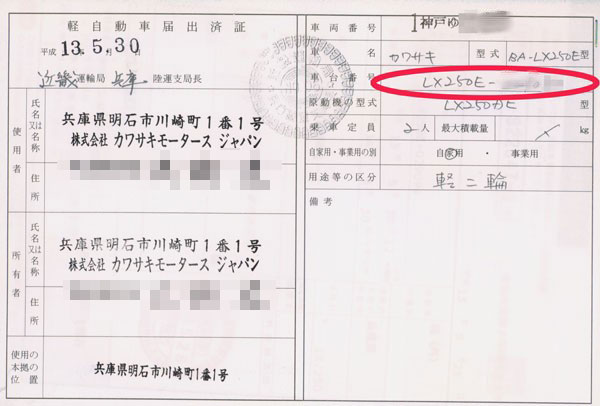 軽自動車届出済証
平成 13.5.30
近畿運輸局 兵庫 陸運支局長
使用者
氏名又は名称
兵庫県明石市川崎町1番1号
株式会社 カワサキモータース ジャパン
住所
所有者
氏名又は名称
兵庫県明石市川崎町1番1号
株式会社 カワサキモータース ジャパン
住所
使用の本拠の位置
兵庫県明石市川崎町1番1号
車両番号 1神戸ゆ
車名 カワサキ 型式 BA-LX250E型
車台番号 LX250E-
原動機の型式 LX250DE 型
乗車定員 2人 最大積載量 kg
自家用・事業用の別 自家用・事業用
用途等の区分 軽二輪
備考